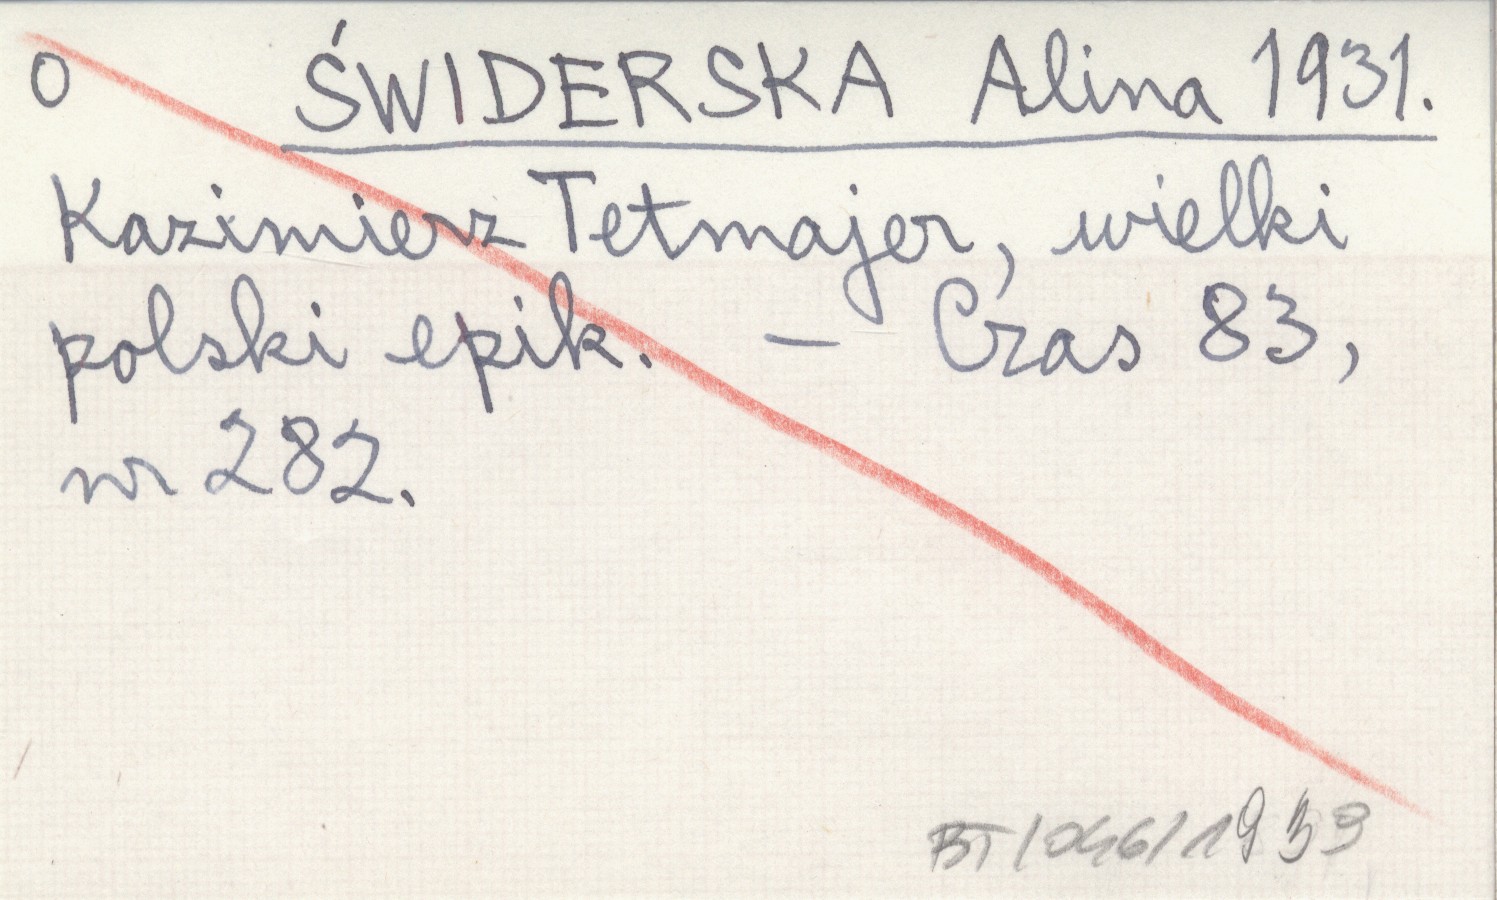 O ŚWIDERSKA Alina 1931.
Kazimierz Tetmajer, wielki
polski epik. — Czas 83,
nr 282.